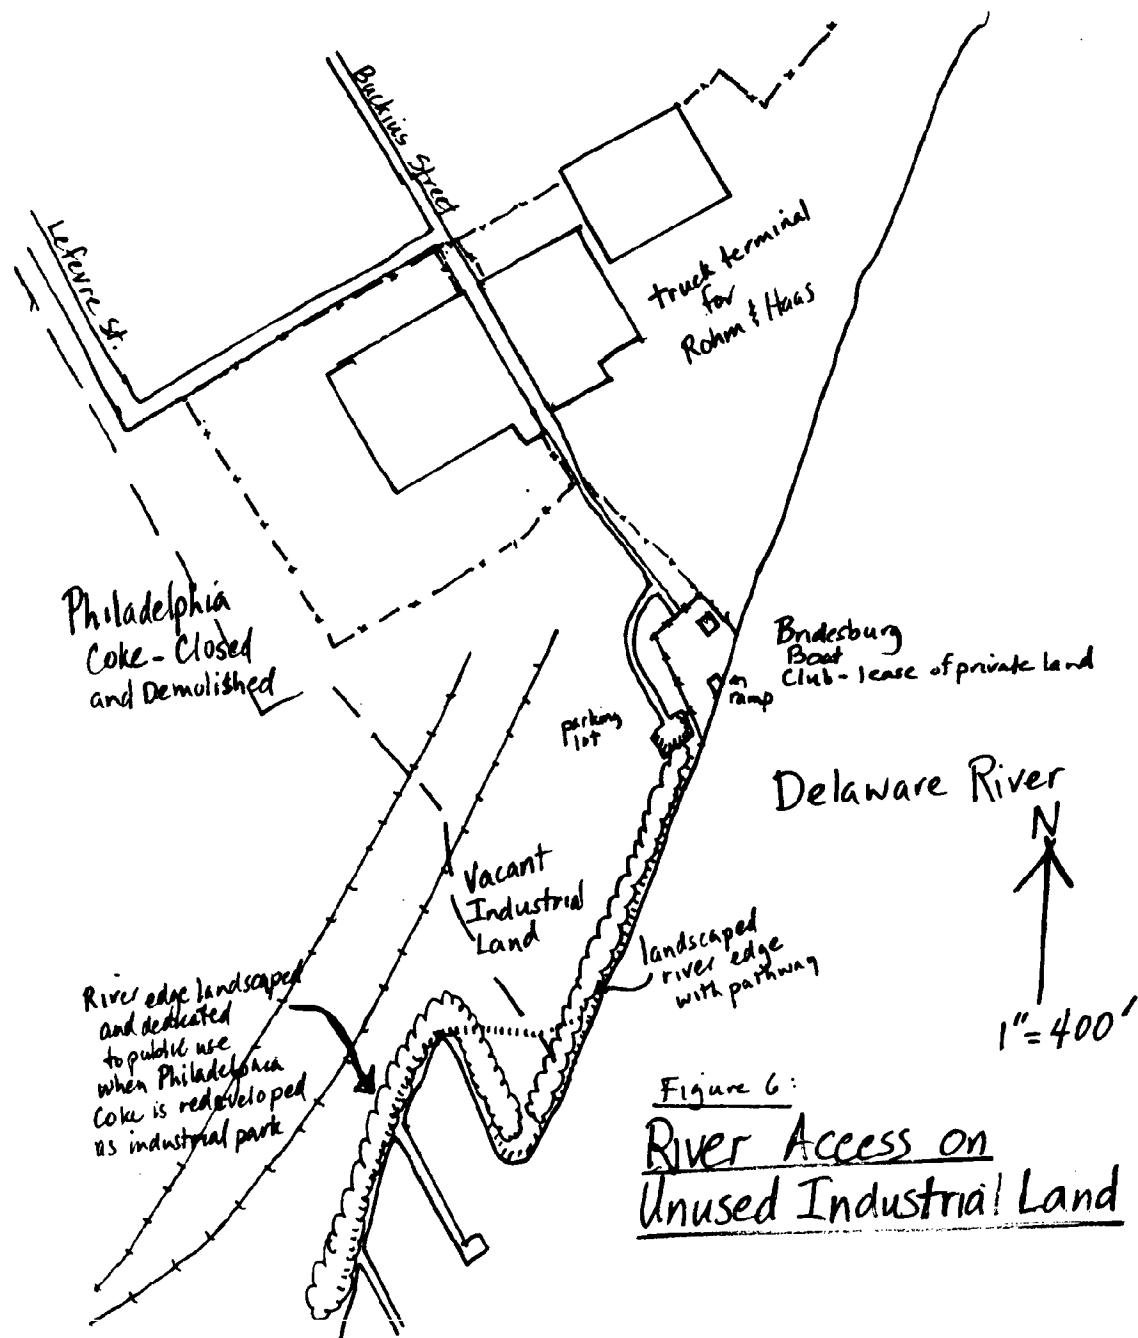 Buckius Street
Lefevre St.
truck terminal
for
Rohm & Haas
Philadelphia
Coke - Closed
and Demolished
Bridesburg
Boat
Club - lease of private land
ramp
parking
lot
Delaware River
N
1" = 400'
Vacant
Industrial
Land
landscaped
river edge
with pathway
River edge landscaped
and dedicated
to public use
when Philadelphia
Coke is redeveloped
as industrial park
Figure 6:
River Access on
Unused Industrial Land